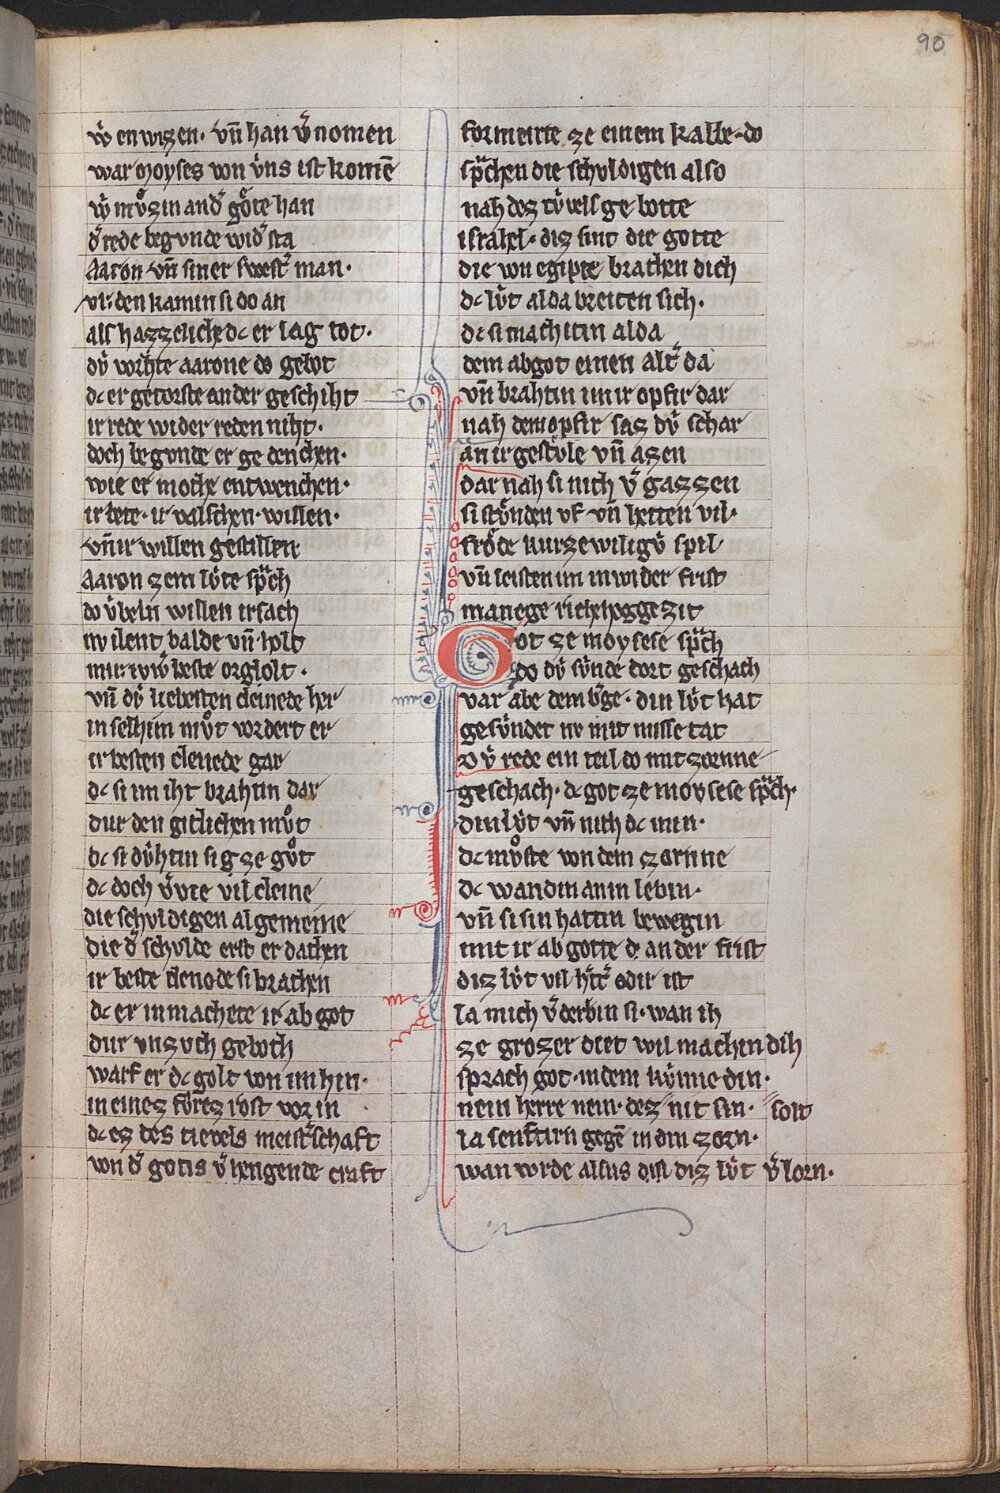 90
w͛ en wizen· vn̄ han v͛nomen
war moyses von vͮns ist komē
w͛ mvͦzin and͛ goͤte han
d͛ rede begvnde wid͛ sta
Aaron vn̄ siner swest͛ man·
vir den kamin si do an
als hazzeliche dc er lag tot·
dvͮ vorhte aarone do gebot
dc er getorste an der geschiht
ir rede wider reden niht·
doch begvnde er gedenchen·
wie er moche entwenchen·
ir bete· ir valschen· willen·
vn̄ ir willen gestillen
Aaron zem lvͮte spͣch
do vͮbeln willen ir sach
nv ilent balde vn̄ holt
mir iw͛ beste orgholt·
vn̄ dvͮ liebesten cleinede her
in selhim mvͦt vordert er
ir besten cleinede gar
dc si im iht brahtin dar
dur den gitlichen mvͦt
dc si dvͮhtin sig ze gvͦt
dc doch vͮvte vil cleine
die schvldigen algemeine
die d͛ schvlde erst er dahen
ir beste clenode si brachen
dc er in machete ir ab got
dur vnzvch geboth
warf er dc golt von im hin·
in einez fvͮrez rost vor in
dc ez des tievels meist͛schaft
von d͛ gotis v͛hengende craft
formeirte ze einem kalbe· do
spͣchen die schvldigen also
nah dez tvͮvels gebotte
israhel· diz sint die gotte
die von egipte brahen dich
dc lvͮt alda breiten sich·
dc si machitin alda
dem abgot einen alt͛ da
vn̄ brahtin im ir opfir dar
nah dem opfir saz dvͮ schar
an ir gestvͦle vn̄ azen
dar nah si nich v͛gazzen
si stvͦnden vf vn̄ hetten vil·
froͤde kurzewiligvͮ spil
vn̄ leisten im in wider frist
manege riche hoggezit
Got ze moysese spͣch
do dvͮ svͮnde dort geschach
var abe dem bͮge· din lvͮt hat
gesvͮndet nv mit misse tat
Dvͮ rede ein teil do mit zornne
geschach· dc got ze moysese spͣch·
din lvͮt vn̄ nich dc min·
dc mvͦste von dem zornne
dc wandin an in lebin·
vn̄ si sin hattin bewegin
mit ir ab gotte dc an der frist
diz lvͮt vil h͛t͛ odir ist
la mich v͛derbin si· wan ih
ze grozer diet wil machin dih
sprach got· in dem kvͮnne din·
nein herre nein· dez nit sin· solt
la senftirn gegē in din zorn·
wan wrde alsus diz lvͮt v͛lorn·